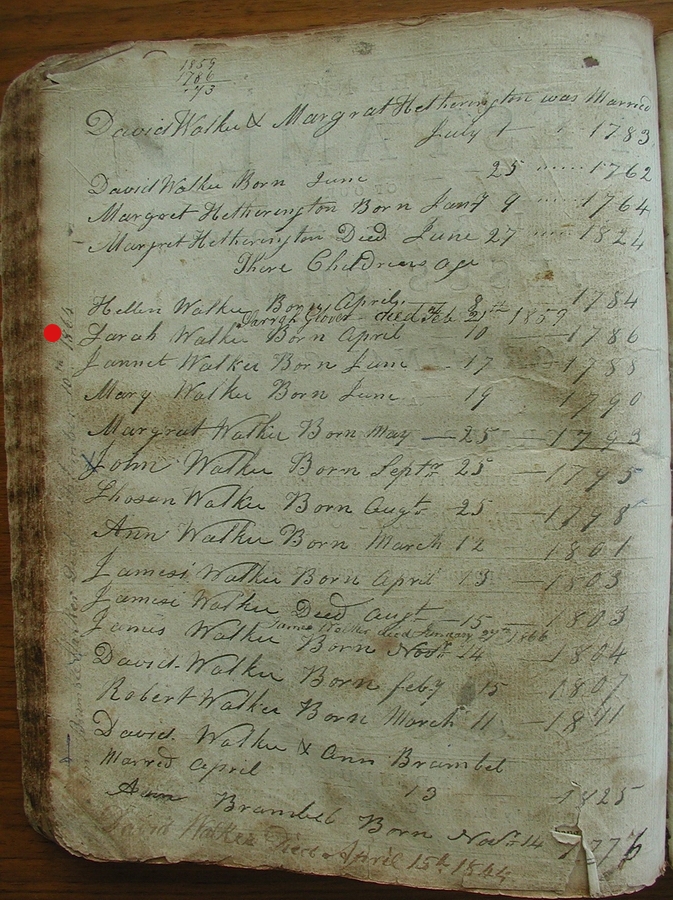 1859
1786
73
David Walker & Margrat Hetherington was Married
July 1 1783
David Walker Born June 25 1762
Margret Hetherington Born Jany 9 1764
Margret Hetherington Died June 27 1824
There Childrens age
Hellen Walker Born April 8 1784
Sarrah Glover died Feb 21th 1859
Sarah Walker Born April 10 1786
Jannet Walker Born June 17 1788
Mary Walker Born June 19 1790
Margrat Walker Born May 25 1793
John Walker Born Septr 25 1795
Thosan Walker Born Augt 25 1798
Ann Walker Born March 12 1801
James Walker Born April 13 1803
James Walker Died Augt 15 1803
James Walker died January 27th 1866
James Walker Born Novr 14 1804
David Walker Born feby 15 1807
Robert Walker Born March 11 1811
David Walker & Ann Brambel
Marred April 13 1825
Ann Brambel Born Novr 14 1776
David Walker Died April 15th 1864